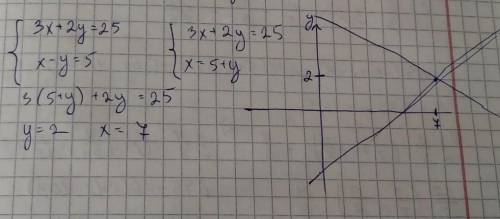 { 3x+2y=25   { 3x+2y=25
{ x-y=5   { x=5+y
3(5+y)+2y=25
y=2   x=7
y
2
7